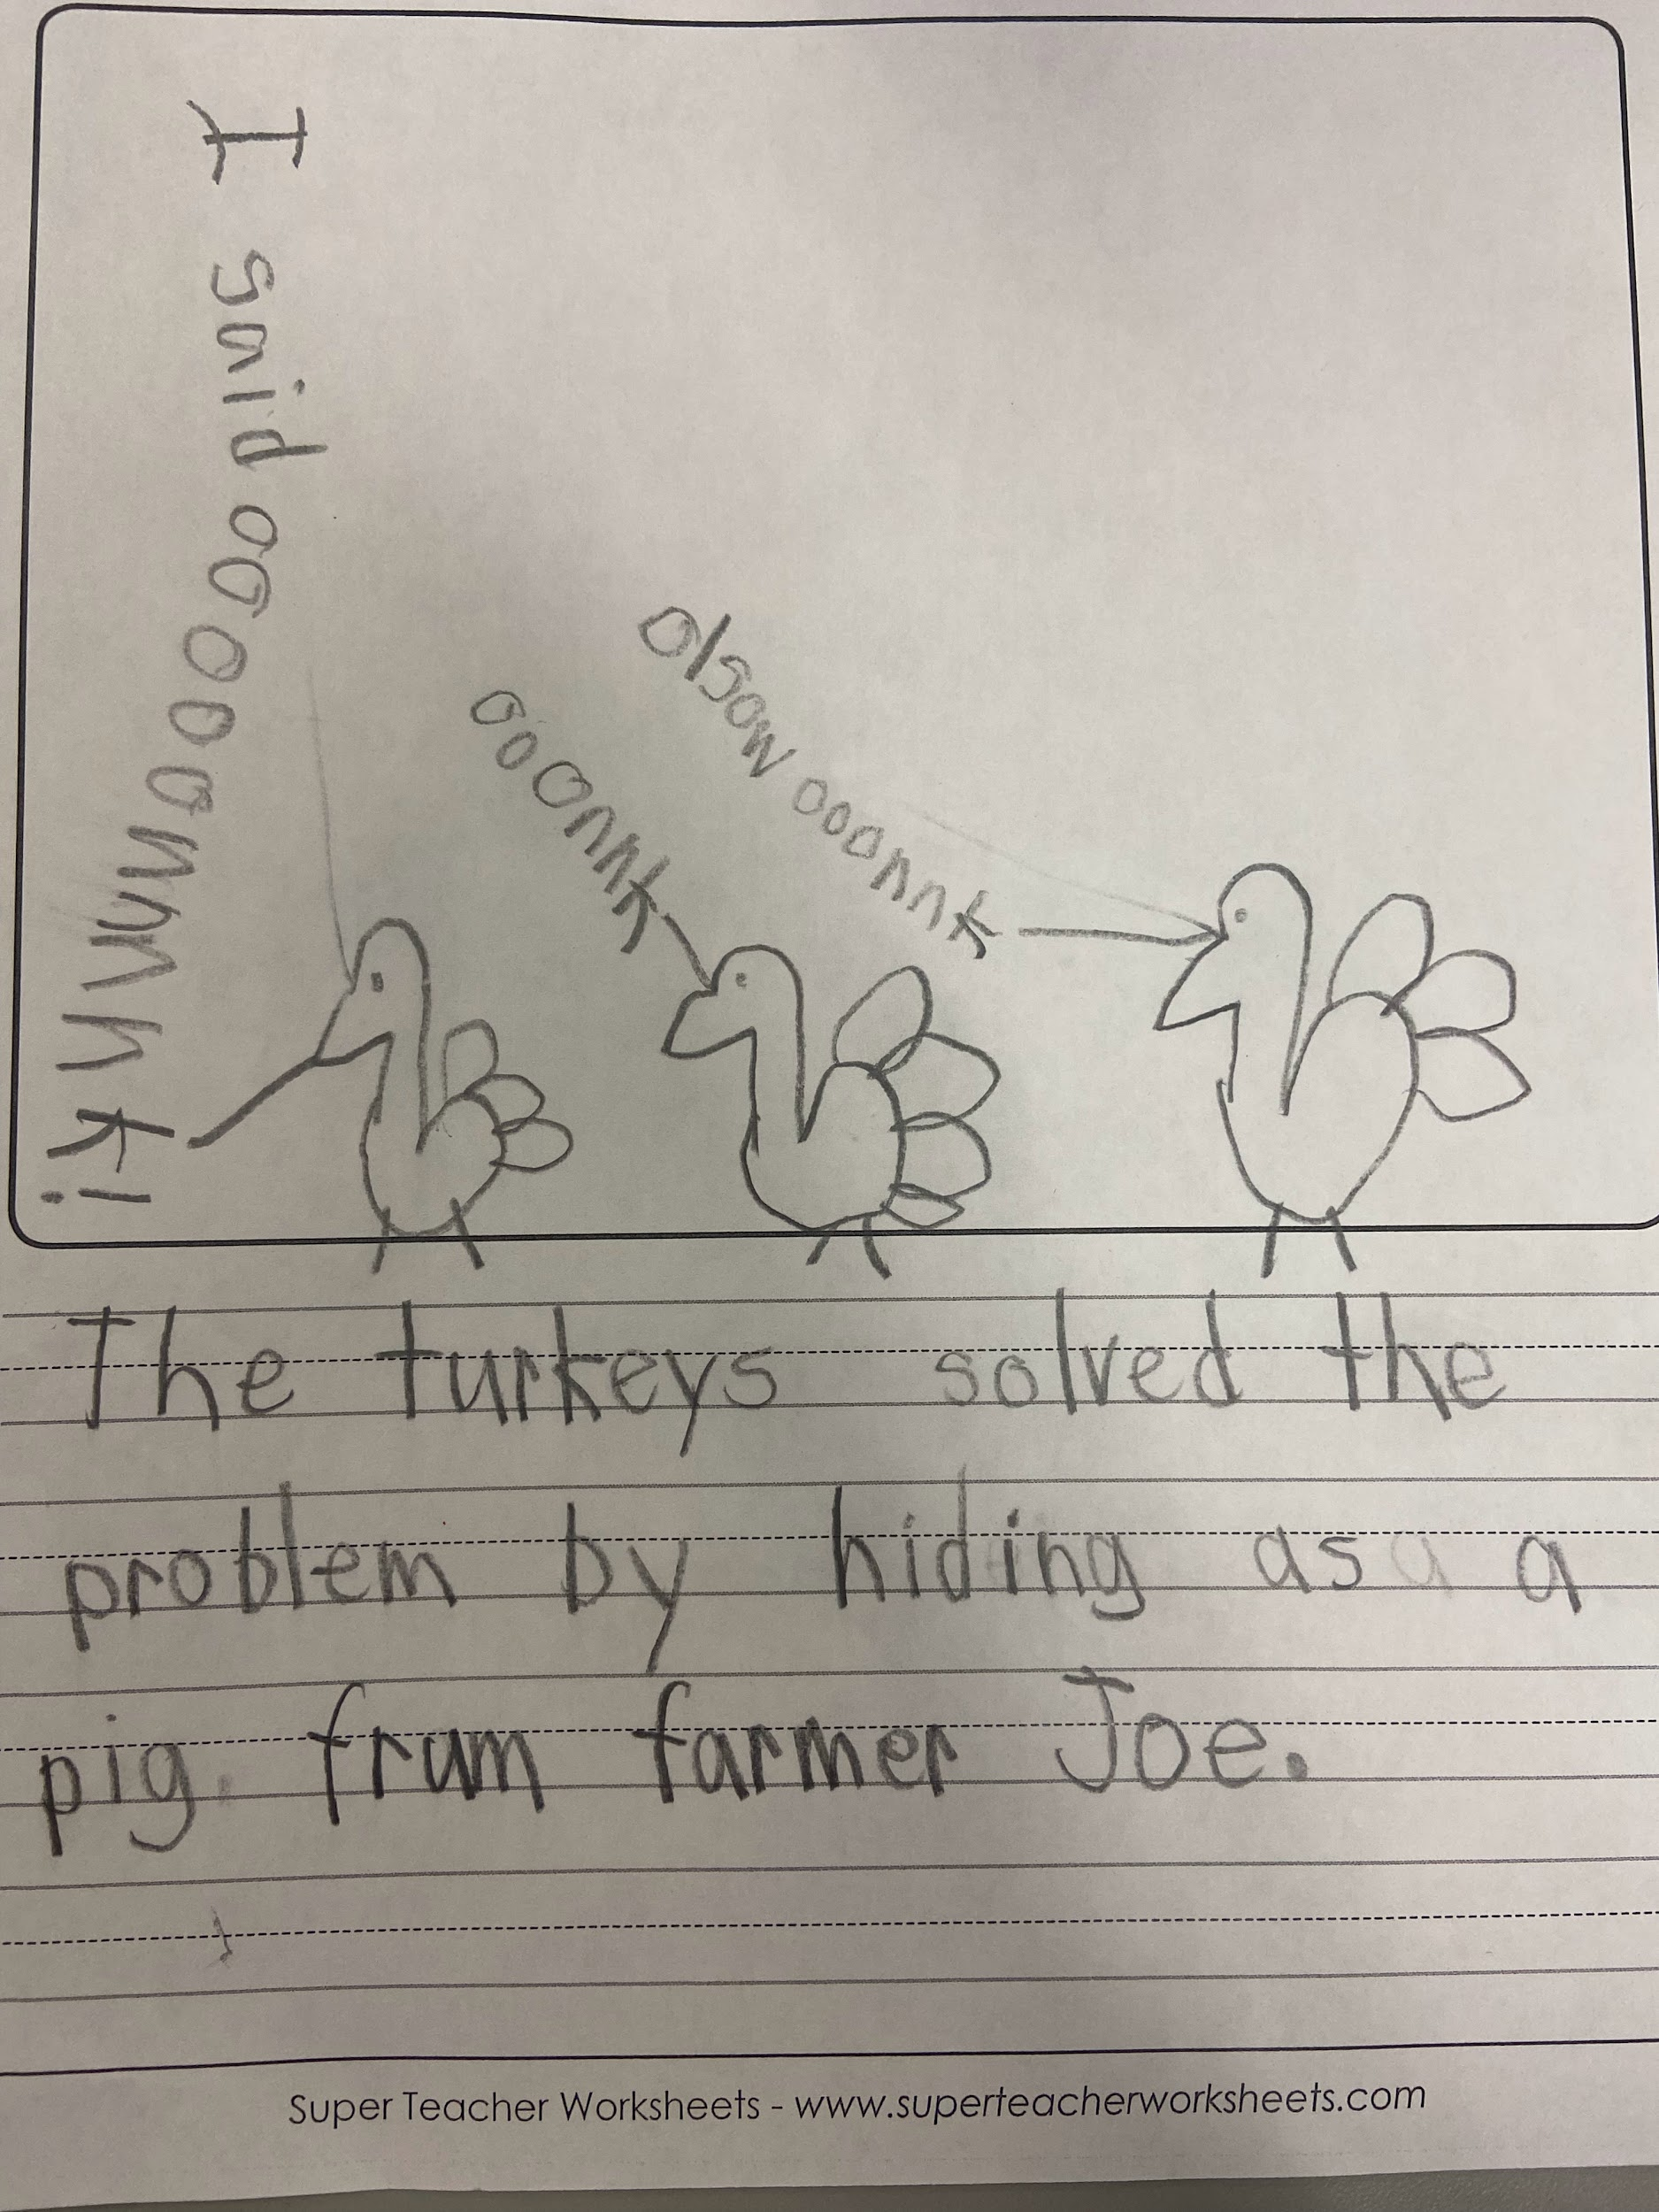 I said ooooonnnnk!
ooonnk
olsow ooonnk
The turkeys solved the
problem by hiding as a
pig frum farmer Joe.
Super Teacher Worksheets - www.superteacherworksheets.com